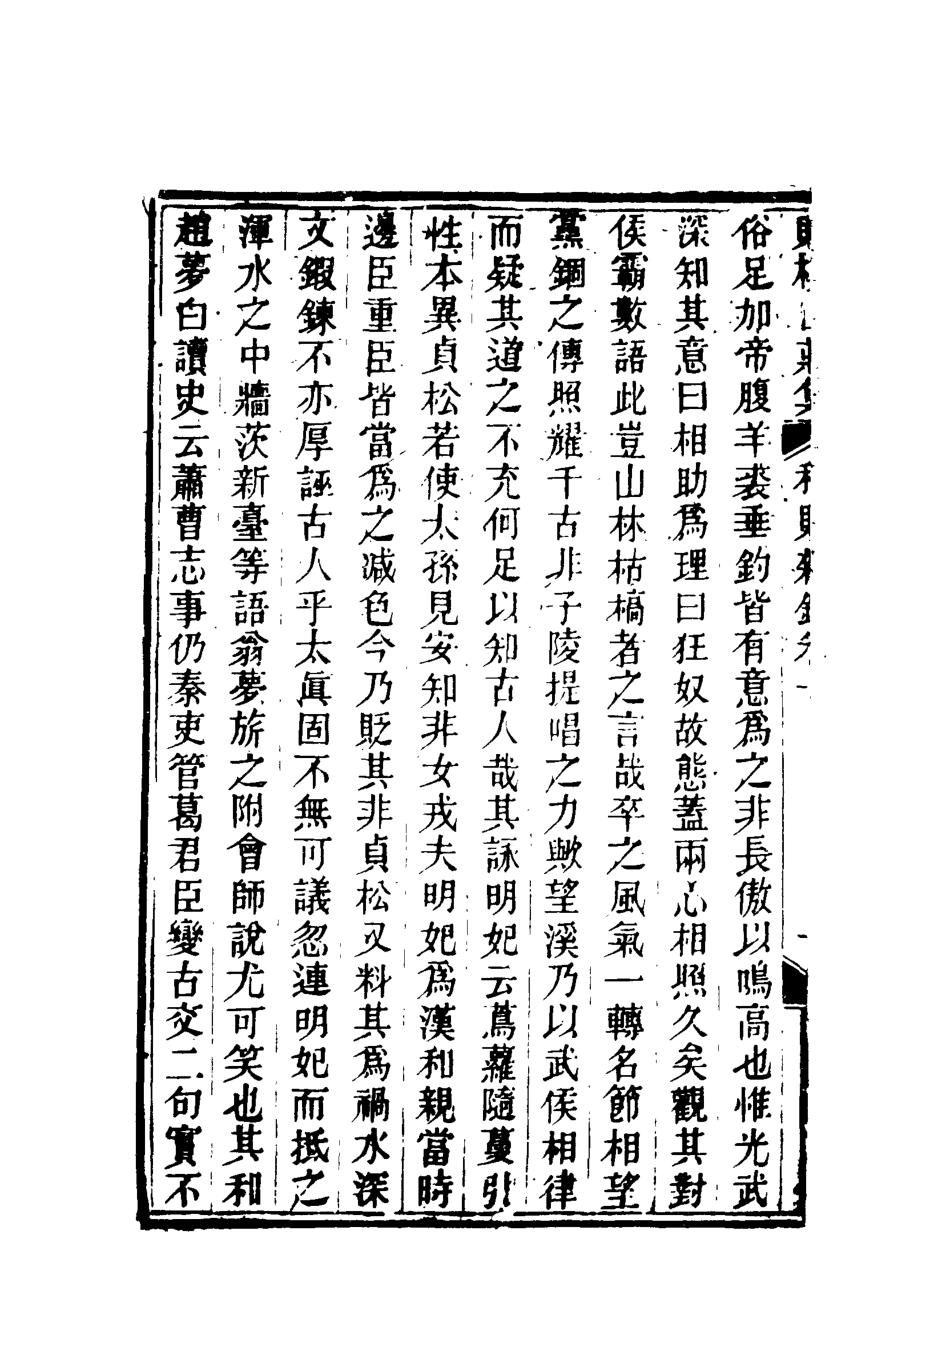 俗足加帝腹羊裘垂釣皆有意爲之非長傲以鳴高也惟光武
深知其意曰相助爲理曰狂奴故態蓋兩心相照久矣觀其對
侯霸數語此豈山林枯槁者之言哉卒之風氣一轉名節相望
黨錮之傳照耀千古非子陵提唱之力歟望溪乃以武侯相律
而疑其道之不充何足以知古人哉其詠明妃云蔦蘿隨蔓引
性本異貞松若使太孫見安知非女戎夫明妃爲漢和親當時
邊臣重臣皆當爲之減色今乃貶其非貞松又料其爲禍水深
文鍜鍊不亦厚誣古人乎太眞固不無可議忽連明妃而抵之
渾水之中牆茨新臺等語翁夢旂之附會師說尤可笑也其和
趙夢白讀史云蕭曹志事仍秦吏管葛君臣變古交二句實不